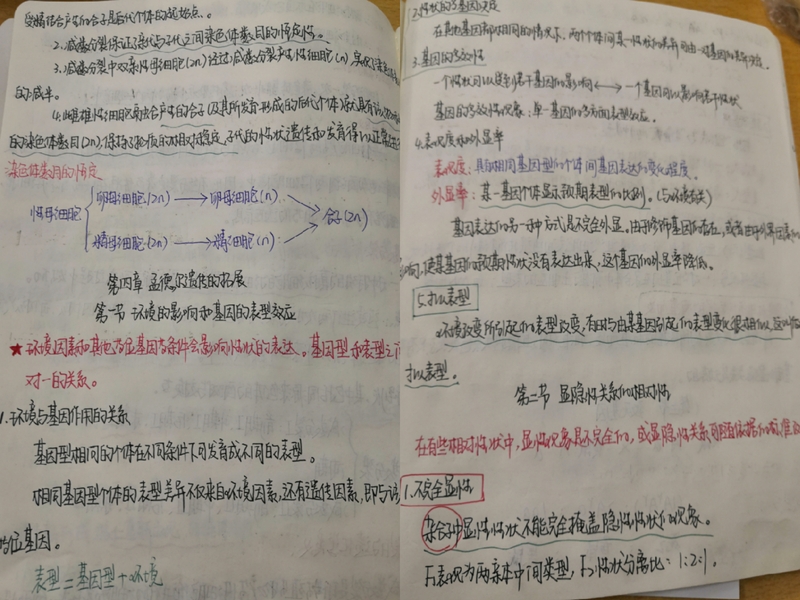 受精结合产生的合子是后代个体的起始点。
2.减数分裂保证了亲代与子代之间染色体数目的恒定性。
3.减数分裂中双条性母细胞(2n)经过减数分裂产生性细胞(n),实现了染色
的减半。
4.雌雄性细胞融合产生的合子(及其所发育形成的后代个体)就具有该
的染色体数目(2n),保持了物质的相对稳定,子代的性状遗传和发育得以正常
染色体数目的恒定
性母细胞
卵母细胞(2n) → 卵母细胞(n)
精母细胞(2n) → 精细胞(n)
合子(2n)
第四章 孟德尔遗传的拓展
第一节 环境的影响和基因的表型效应
★环境因素和其他等位基因等条件会影响性状的表达。基因型和表型之
对一的关系。
1.环境与基因作用的关系
基因型相同的个体在不同条件下可发育成不同的表型。
相同基因型个体的表型差异不仅来自环境因素,还有遗传因素,即与
等位基因。
表型=基因型+环境
2.性状的多基因决定
在其他基因都相同的情况下,两个体间某一性状的差异可由一对基因的差异
3.基因的多效性
一个性状可以受到若干基因的影响 ↔ 一个基因可以影响若干性状
基因的多效性现象:单一基因的多方面表型效应。
4.表现度和外显率
表现度:具有相同基因型的个体间基因表达的变化程度。
外显率:某一基因个体显示预期表型的比例。(与环境有关)
基因表达的另一种方式是不完全外显。由于修饰基因的存在,或者由于外界因素的
影响,使某基因的预期性状没有表达出来,这个基因的外显率降低。
5.拟表型
环境改变所引起的表型改变,有时与由某基因引起的表型变化很相似,这
拟表型。
第二节 显隐性关系的相对性
在有些相对性状中,显性现象是不完全的,或显隐性关系可随依据的标准
1.不完全显性
杂合子中显性性状不能完全掩盖隐性性状的现象。
F₁表现为两亲本中间类型,F₂性状分离比:1:2:1。